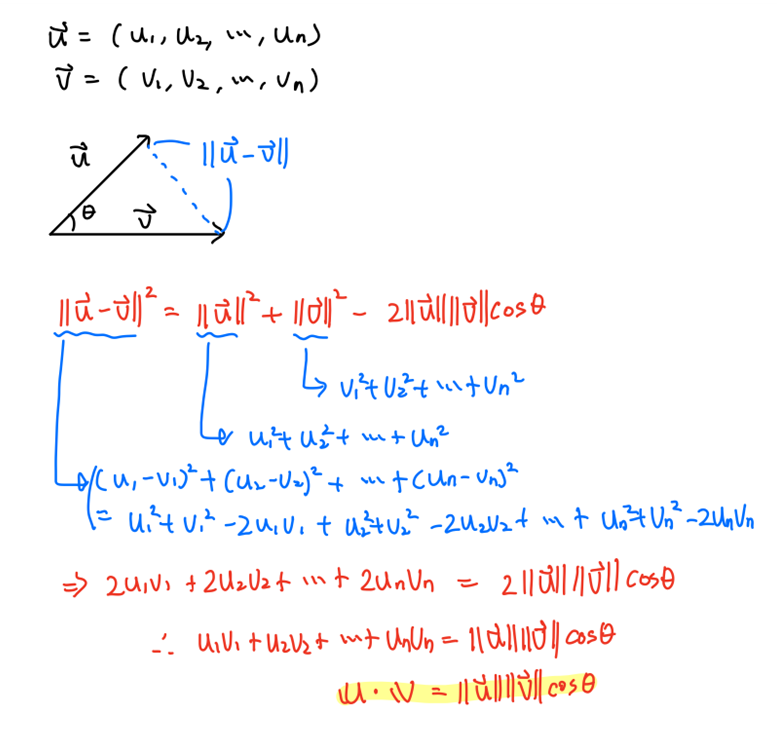 u⃗ = (u₁, u₂, ⋯, uₙ)
v⃗ = (v₁, v₂, ⋯, vₙ)
u⃗
‖u⃗ - v⃗‖
θ
v⃗
‖u⃗ - v⃗‖² = ‖u⃗‖² + ‖v⃗‖² - 2‖u⃗‖‖v⃗‖cosθ
v₁² + v₂² + ⋯ + vₙ²
u₁² + u₂² + ⋯ + uₙ²
(u₁ - v₁)² + (u₂ - v₂)² + ⋯ + (uₙ - vₙ)²
= u₁² + v₁² - 2u₁v₁ + u₂² + v₂² - 2u₂v₂ + ⋯ + uₙ² + vₙ² - 2uₙvₙ
⇒ 2u₁v₁ + 2u₂v₂ + ⋯ + 2uₙvₙ = 2‖u⃗‖‖v⃗‖cosθ
∴ u₁v₁ + u₂v₂ + ⋯ + uₙvₙ = ‖u⃗‖‖v⃗‖cosθ
𝕦 · 𝕧 = ‖u⃗‖‖v⃗‖cosθ